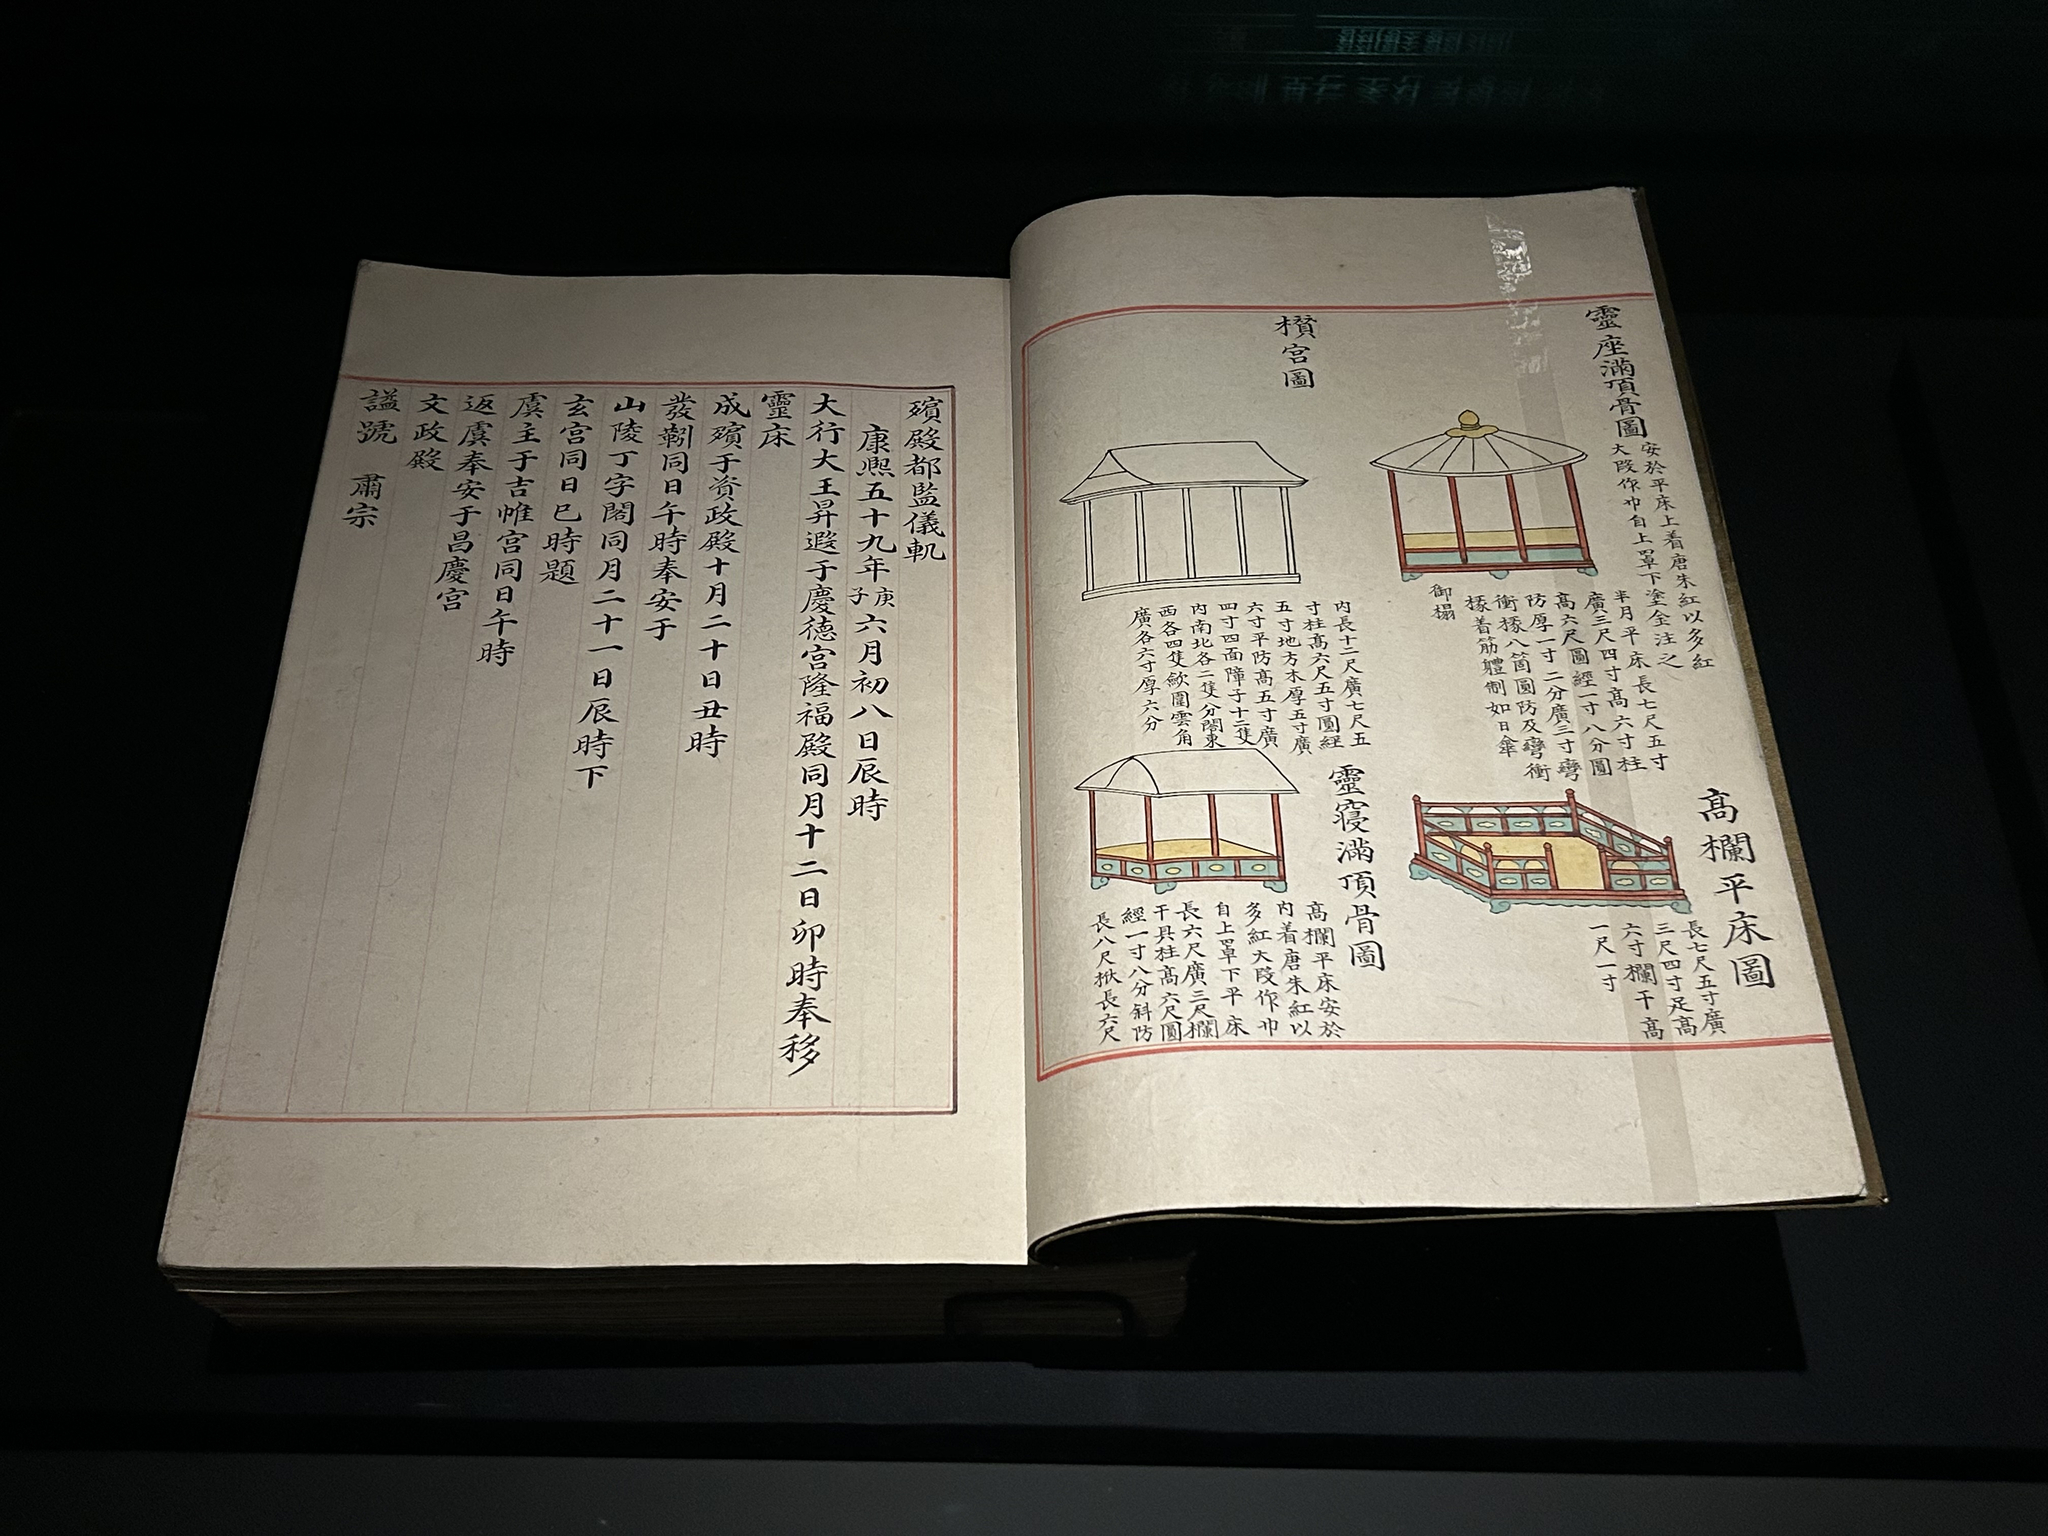 靈座滿頂骨圖
安於平床上着唐朱紅以多紅
大段作巾自上罩下塗金注之
半月平床長七尺五寸
廣三尺四寸高六寸柱
高六尺圓經一寸八分圓
防厚一寸二分廣三寸彎
衝椽八箇圓防及彎衝
椽着筋軆制如日傘
御榻
高欄平床圖
長七尺五寸廣
三尺四寸足高
六寸欄干高
一尺一寸
欑宮圖
内長十二尺廣七尺五
寸柱高六尺五寸圓經
五寸地方木厚五寸廣
六寸平防高五寸廣
四寸四面障子十二隻
内南北各二隻分閤東
西各四隻歛圍雲角
廣各六寸厚六分
靈寢滿頂骨圖
高欄平床安於
内着唐朱紅以
多紅大段作巾
自上罩下平床
長六尺廣三尺欄
干具柱高六尺圓
經一寸八分斜防
長八尺揪長六尺
殯殿都監儀軌
康熙五十九年庚子六月初八日辰時
大行大王昇遐于慶德宮隆福殿同月十二日卯時奉移
靈床
成殯于資政殿十月二十日丑時
發靷同日午時奉安于
山陵丁字閣同月二十一日辰時下
玄宮同日巳時題
虞主于吉帷宮同日午時
返虞奉安于昌慶宮
文政殿
諡號 肅宗